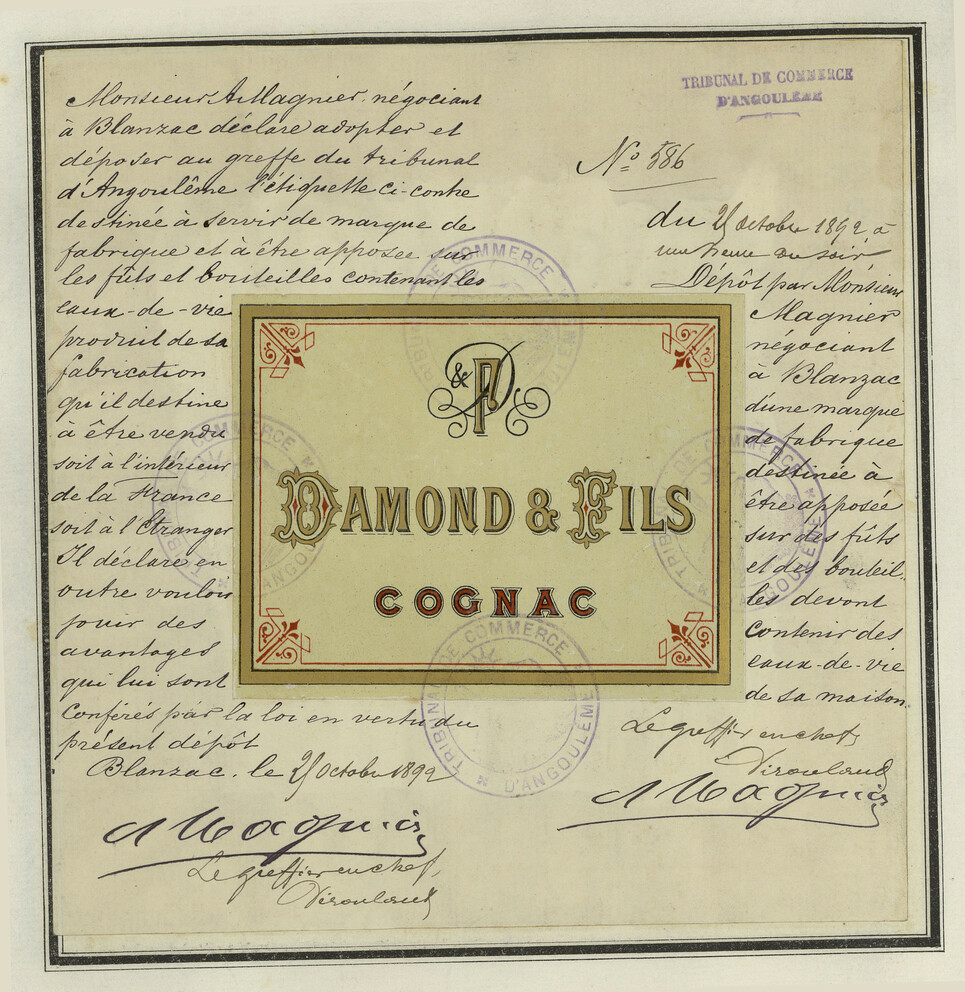 Monsieur A. Magnier, négociant
à Blanzac déclare adopter et
déposer au greffe du tribunal
d'Angoulême l'étiquette ci-contre
destinée à servir de marque de
fabrique et à être apposée sur
les fûts et bouteilles contenant les
eaux-de-vie
produit de sa
fabrication
qu'il destine
à être vendu
soit à l'intérieur
de la France
soit à l'Etranger
Il déclare en
outre vouloir
jouir des
avantages
qui lui sont
conférés par la loi en vertu du
présent dépôt
Blanzac, le 25 Octobre 1892
A Magnier
Le greffier en chef,
TRIBUNAL DE COMMERCE
D'ANGOULÊME
No 586
du 25 octobre 1892, à
une heure du soir
Dépôt par Monsieur
Magnier
négociant
à Blanzac
d'une marque
de fabrique
destinée à
être apposée
sur des fûts
et des bouteil-
les devant
contenir des
eaux-de-vie
de sa maison.
Le greffier en chef,
A Magnier
D & F.
DAMOND & FILS
COGNAC
TRIBUNAL DE COMMERCE
D'ANGOULÊME
TRIBUNAL DE COMMERCE
D'ANGOULÊME
TRIBUNAL DE COMMERCE
D'ANGOULÊME
TRIBUNAL DE COMMERCE